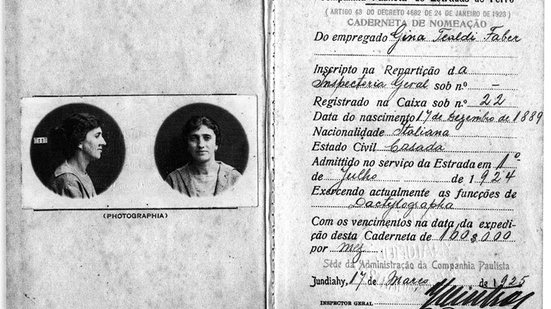 (PHOTOGRAPHIA)
Companhia Paulista de Estradas de Ferro
(ARTIGO 43 DO DECRETO 4682 DE 24 DE JANEIRO DE 1923)
CADERNETA DE NOMEAÇÃO
Do empregado Gina Tealdi Faber
Inscripto na Repartição da
Inspectoria Geral sob n.º -
Registrado na Caixa sob n.º 22
Data do nascimento 17 de Dezembro de 1889
Nacionalidade Italiana
Estado Civil Casada
Admittido no serviço da Estrada em 1º
de Julho de 1924
Exercendo actualmente as funcções de
Dactylographa
Com os vencimentos na data da expedi-
ção desta Caderneta de
por mez
Séde da Administração da Companhia Paulista
Jundiahy, 17 de Março de 1925
INSPECTOR GERAL